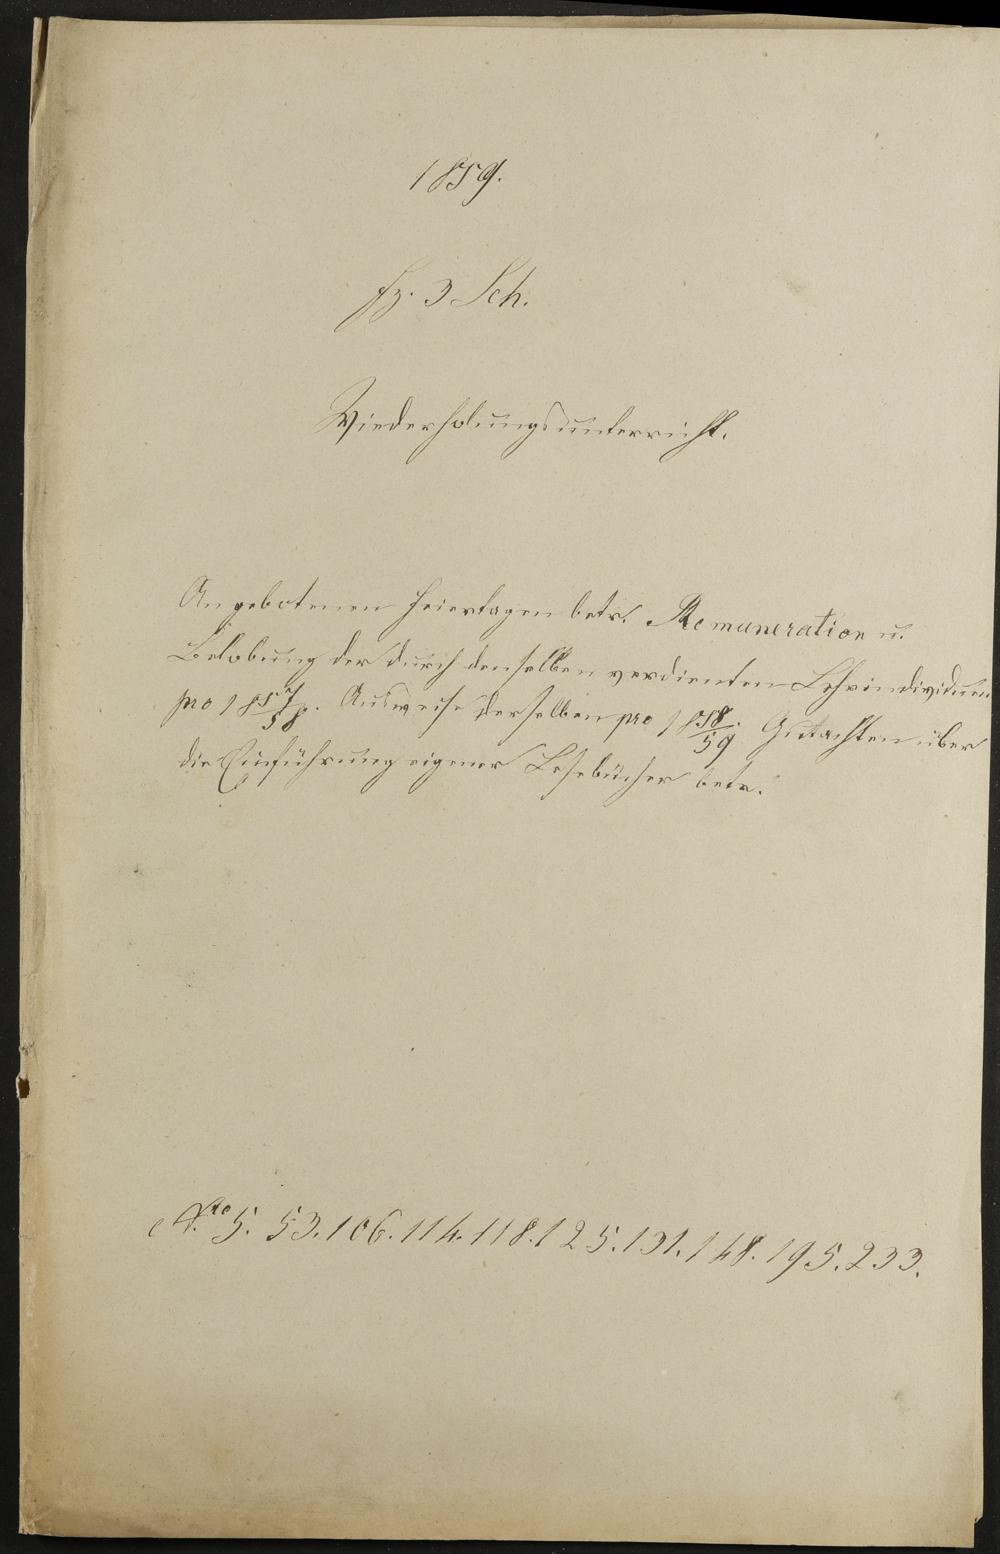 1859.
Fz. 3 Sch.
Wiederholungsunterricht.
An gebotenen Feiertagen betr. Remuneration u.
Belobung der durch denselben verdienten Lehrindividuen
pro 1857/58. Ausweise derselben pro 1858/59. Gutachten über
die Einführung eigener Lesebücher betr.
No 5. 53. 106. 114. 118. 125. 131. 148. 195. 233.